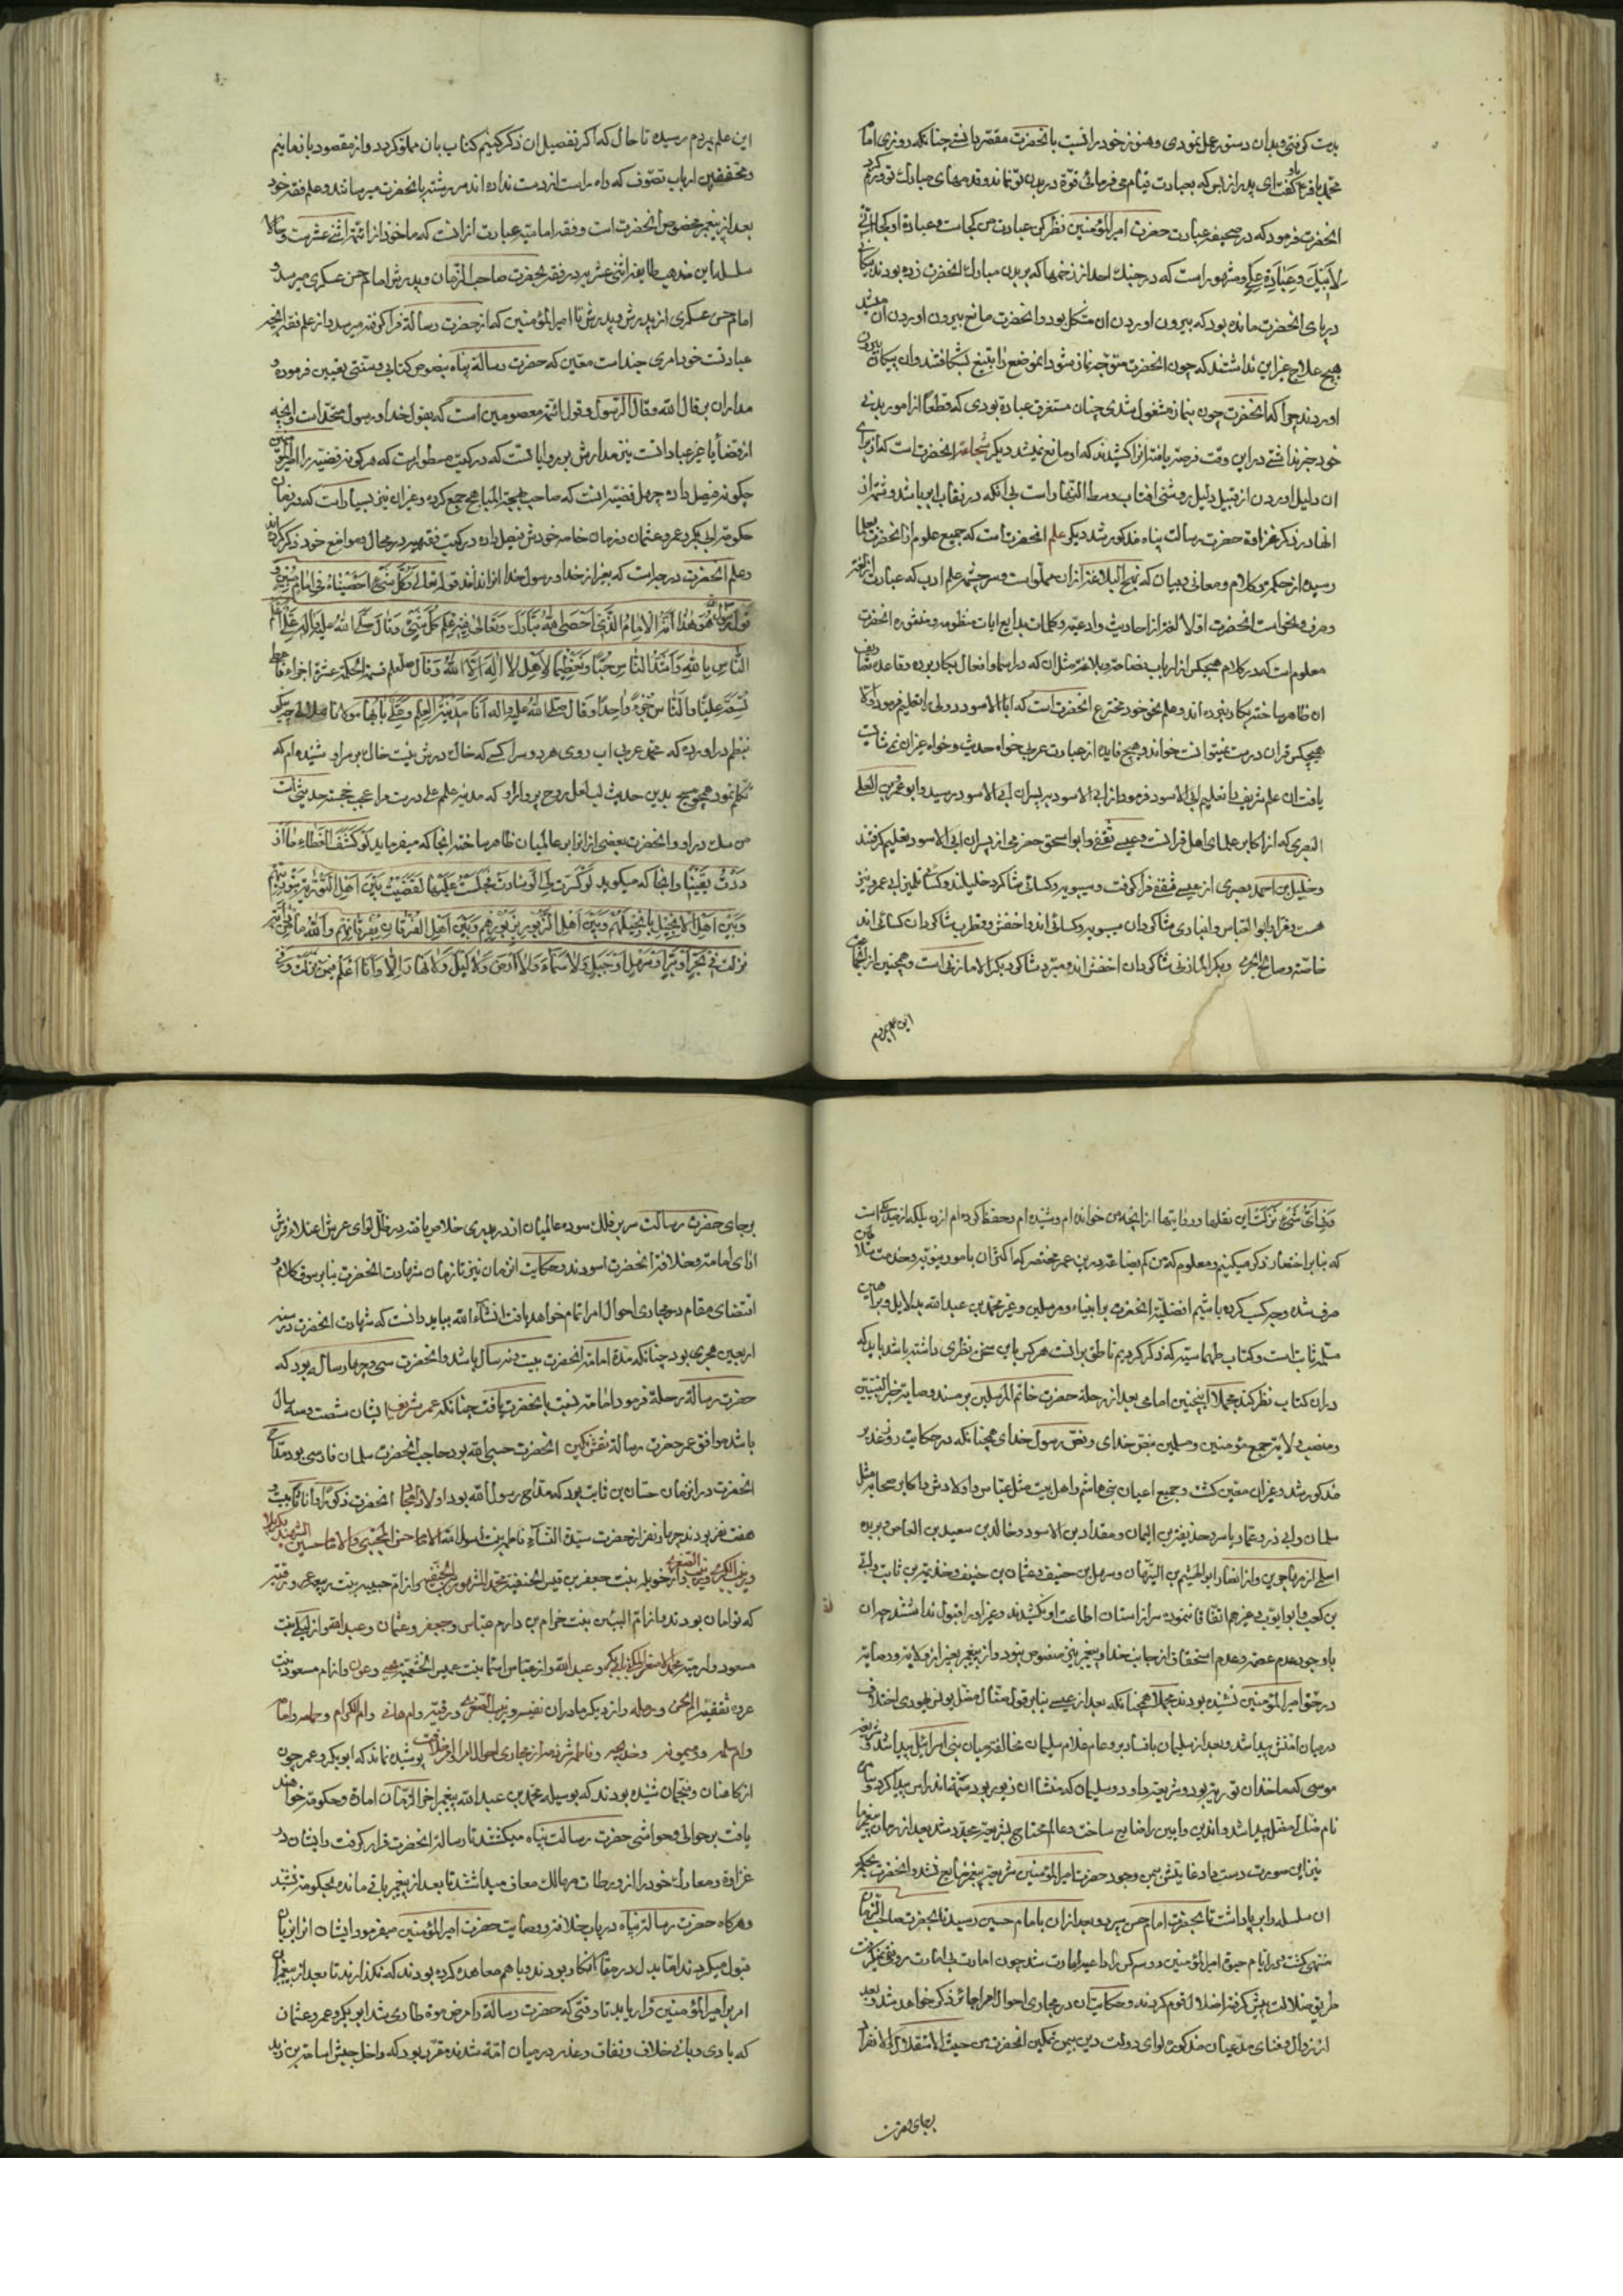 بدست گرفتی و بدان دستور عمل نمودی و هنوز خود را نسبت بانحضرت مقصر دانستی چنانکه روزی امام
محمد باقر باو گفت ای پدر از بس که بعبادت قیام می فرمائی قوة در بدن تو نماند و قدمهای مبارك تو ورم کرد
انحضرت فرمود که در صحیفه عبادت حضرت امیرالمؤمنین نظر کن عبادت من کجاست و عبادة او کجا
و مشهور است که در جنك احد از زخمها که بر بدن مبارك انحضرت زده بودند پیکانی
در پای انحضرت مانده بود که بیرون اوردن ان مشکل بود و انحضرت مانع بیرون اوردن ان میشد
هیچ علاج غیر این نداشتند که چون انحضرت متوجه نماز شود انموضع را بتیغ بشکافتند و ان پیکان بیرون
اوردند چرا که انحضرت چون بنماز مشغول شدی چنان مستغرق عبادة بودی که قطعا از امور بدنی
خود خبر نداشتی در این وقت فرصت یافته انرا کشیدند که او مانع نمیشد دیگر شجاعت انحضرت است که از برای
ان دلیل اوردن از قبیل دلیل روشنی افتاب وسط النهار است بی انکه در نقاب ابر باشد و شمه از
انها در ذکر غزاوة حضرت رسالت پناه مذکور شد دیگر علم انحضرت است که جمیع علوم از انحضرت بعلما
رسیده از حکمی و کلام و معانی و بیان که نهج البلاغه از ان مملو است و سرچشمه علم ادب که عبارت از لغة
و صرف و نحو است انحضرت اولا لغة از احادیث و ادعیه و کلمات بدایع ایات منظومه و منثوره انحضرت
معلوم است که در کلام هیچکس از ارباب فصاحة و بلاغة مثل ان که در اسما و افعال بکار برده و قاعده
ان ظاهر ساخته بکار نبرده اند و علم نحو خود مخترع انحضرت است که ابا الاسود دولی را تعلیم فرمود و الا
هیچکس قران درست نمیتوانست خواند و هیچ فایده از عبارت عربی خواه حدیث و خواه غیر ان نمیتوانست
یافت ان علم شریف را تعلیم ابی الاسود فرمود از ابی الاسود به پسران ابی الاسود رسید و ابو عمرو بن العلاء
البصری که از اکابر علمای اهل قرائست و عیسی ثقفی و ابو اسحق حضرمی از پسران ابی الاسود تعلیم گرفتند
و خلیل بن احمد بصری از عیسی ثقفی فرا گرفت و سیبویه و کسائی شاگرد خلیلند و کسائی تلمیذ ابی عمرو نیز
هست و فرا و ابوالعباس و انباری شاگردان سیبویه و کسائی اند و اخفش و قطرب شاگردان کسائی اند
خاصة و صالح الجرمی و بکر المازنی شاگردان اخفش اند و مبرد شاگرد بکر المازنی است و همچنین از
این علم بمردم
این علم بمردم رسیده تا حال که اگر تفصیل ان ذکر کنیم کتاب بان مملو گردد و از مقصود باز مانیم
و محققین ارباب تصوف که راه راست از دست نداده اند سررشته بانحضرت میرسانند و علم فقه خود
بعد از پیغمبر مخصوص انحضرت است و فقه امامیه عبارت از انست که ماخوذ از ائمه اثنی عشریست و حالا
سلسله این مذهب طایفه اثنی عشریه در فقه بحضرت صاحب الزمان و پدرش امام حسن عسکری میرسد و
امام حسن عسکری از پدرش و پدرش تا امیرالمؤمنین که از حضرت رسالة فرا گرفته میرسد و از علم فقه انچه
عبادتست خود امری چند است معین که حضرت رسالة پناه بنصوص کتابی و سنتی تعیین فرموده و
مدار ان بر قال الله و قال الرسول و قول ائمه معصومین است که بقول خدا و رسول متحد است و انچه
از قضایا غیر عباداتست نیز مدارش بر روایاتست که در کتب مسطور است که هر گونه قضیه را امیرالمؤمنین
چگونه فیصل داده چهل قضیه انست که صاحب بهجة المباهج جمع کرده و غیر ان نیز بسیار است که در زمان
حکومة ابی بکر و عمر و عثمان و زمان خاصه خودش فیصل داده در کتب فقهیه در محال و مواضع خود ذکر کرده اند
و علم انحضرت در جبر است که بغیر از خدا و رسول خدا انرا نداند قوله تعالی و كل شيء احصيناه في امام مبين و
هو هذا انه الامام الذي احصى الله تبارك وتعالى فيه علم كل شيء وقال صلى الله عليه واله علي اعلم
الناس بالله واشد الناس حبا وتعظيما لاهل لا اله الا الله وقال صلعم قسمة الحكمة عشرة اجزاء فاعطى
تسعة عليا والناس جزءا واحدا وقال صلى الله عليه واله انا مدينة العلم وعلي بابها
بنظم در اورده که محمد عربی اب روی هر دو سرا کسی که خاك درش نیست خاك بر سر او شنیده ام که
تکلم نمود همچو مسیح بدین حدیث لب لعل روح پرور او که مدینه علم علی درست مرا عجب خجسته حدیثی است
من سك در او و انحضرت بعضی از انرا بر عالمیان ظاهر ساخته انجا که میفرماید لو كشف الغطاء ما ازددت
يقينا و انجا که میگوید لو كسرت لي الوسادة فجلست عليها لقضيت بين اهل التورية بتوريتهم
وبين اهل الانجيل بانجيلهم وبين اهل الزبور بزبورهم وبين اهل الفرقان بفرقانهم والله ما من اية
نزلت في بحر او بر او سهل او جبل ولا سماء ولا ارض ولا ليل ولا نهار الا وانا اعلم فيمن نزلت و في
و في اي شيء نزلت این نقلها و روایتها از انچه من خوانده ام و شنیده ام و حفظ کرده ام از ده بلکه از صد یکی است
که بنا بر اختصار ذکر میکنیم و معلوم که من کم بضاعة در این عمر مختصر که اکثر ان بامور دنیویه و خدمت
صرف شده و چه کسب کرده باشیم افضلیة انحضرت بر انبیاء و مرسلین و غیر محمد بن عبد الله بدلایل و براهین
مثبته ثابت است و کتاب طهماسیه که ذکر کردیم ناطق بر انست هر کس باین سخن نظری داشته باشد باید که
در ان کتاب نظر کند مجملا اینچنین امامی بعد از رحلة حضرت خاتم المرسلین بر مسند وصایة خیر النبیین
و منصب ولایة جمیع مؤمنین و مسلمین بنص خدای و بنص رسول خدای همچنانکه در حکایت روز غدیر
مذکور شد و غیر ان معین گشت و جمیع اعیان بنی هاشم و اهل بیت مثل عباس و اولادش و اکابر صحابه مثل
سلمان و ابی ذر و عمار یاسر و حذیفة بن الیمان و مقداد بن الاسود و خالد بن سعید بن العاص و بریده
اسلمی از مهاجرین و از انصار ابو الهیثم بن التیهان و سهل بن حنیف و عثمان بن حنیف و خذیمة بن ثابت و ابی
بن کعب و ابو ایوب و غیرهم اتفاقا ننموده سر از استان اطاعت او نکشیدند و غیر او را قبول نداشتند چه ان
باوجود عدم عصمة و عدم استحقاق از جانب خدا و پیغمبر نیز منصوص نبود و از پیغمبر بغیر از ولایة و وصایة
در حق امیرالمؤمنین نشنیده بودند مجملا همچنانکه بعد از عیسی بنا بر قول متثال مثل بولس یهودی اختلاف
در میان امتش پیدا شد و بعد از سلیمان بافساد یربوعام غلام سلیمان مخالفة میان بنی اسرائیل پیدا شد و شریعة
موسی که ماخذ ان توریة بود و شریعة داود و سلیمان که منشا ان زبور بود
نام مثل مضل پیدا شد و اندین و ایین را ضایع ساخت و عالم محتاج بشریعة مجدد شد بعد از زمان پیغمبر ما
نیز این صورت دست داد غایتش بیمن وجود حضرت امیرالمؤمنین شریعة پیغمبر ضایع نشد و انحضرت
ان سلسله را بر پا داشت تا بحضرت امام حسن سپرد و بعد از ان بامام حسین رسید تا بحضرت صاحب الزمان
منتهی گشت و در ایام حیوة امیرالمؤمنین دو سه کس را داعیه امارت شد چون امارت بی امارت رونقی نمیگرفت
طریق ضلالت پیش گرفته اضلال قوم کردند و حکایت ان در مجاری احوال امرا جائر ذکر خواهد شد و بعد
از زوال و فنای مدعیان مذکور لوای دولت دین بیمن تمکین انحضرت من حیث الاستقلال و الانفراد
بجای حضرت
بر جای حضرت رسالت سر بر فلك سوده عالمیان از در بدری خلاص یافته در ظل لوای عرش اعتلاء فرش
ارای امامة و خلافة انحضرت اسودند و حکایت ان زمان نیز تا زمان شهادت انحضرت بنا بر سوق کلام و
اقتضای مقام در مجاری احوال امرا تمام خواهد یافت انشاء الله بباید دانست که شهادت انحضرت در سنه
اربعین هجری بود چنانکه مدة امامة انحضرت بیست و نه سال باشد و انحضرت سی و چهار ساله بود که
حضرت رسالة رحلة فرمود امامة نسبت بانحضرت یافت چنانکه عمر شریف ایشان شصت و سه سال
باشد موافق عمر حضرت رسالة نقش نگین انحضرت حسبی الله بود حاجب انحضرت سلمان فارسی بود مداح
انحضرت در انزمان حسان بن ثابت بود که مداح رسول الله بود اولاد امجاد انحضرت ذکورا و اناثا بیست و
هفت نفر بودند چهار نفر از حضرت سیدة النساء فاطمه بنت رسول الله الامام حسن المجتبی و الامام حسین الشهید بکربلا
و زینب الکبری و زینب الصغری و از خوله بنت جعفر بن قیس الحنفیه محمد المشهور بابن الحنفیه و از ام حبیبه بنت ربیعه عمر و رقیه
که توامان بودند و از ام البنین بنت حزام بن دارم عباس و جعفر و عثمان و عبد الله و از لیلی بنت
مسعود دارمیه محمد الاصغر المکنی بابی بکر و عبد الله و از اسما بنت عمیس الخثعمیه یحیی و عون و از ام مسعود بنت
عروه ثقفیه ام الحسن و رمله و از دیگر مادران نفیسه و زینب الصغری و رقیه و ام هانی و ام الکرام و جمانه و امامه
و ام سلمه و میمونه و خدیجه و فاطمه پوشیده نماند که ابو بکر و عمر چون
از کاهنان و منجمان شنیده بودند که بوسیله محمد بن عبد الله پیغمبر اخر الزمان امارة و حکومة خواهند
یافت بر حوالی و حواشی حضرت رسالت پناه میگشتند تا رسالة انحضرت قرار گرفت و ایشان در
غزاوة و معارك خود را از ورطات مهالك معاف میداشتند تا بعد از پیغمبر باقی مانده بحکومة رسند
و هرگاه حضرت رسالة پناه در باب خلافة و وصایت حضرت امیرالمؤمنین میفرمود ایشان انرا بزبان
قبول میکردند اما بدل در مقام انکار بودند و با هم معاهده کرده بودند که نگذارند تا بعد از پیغمبر ان
امر بر امیرالمؤمنین قرار یابد تا وقتی که حضرت رسالة را مرض موة طاری شد ابو بکر و عمر و عثمان
که بادی و بانی خلاف و نفاق و غدر در میان امة شدند مقرر بود که داخل جیش اسامة بن زید